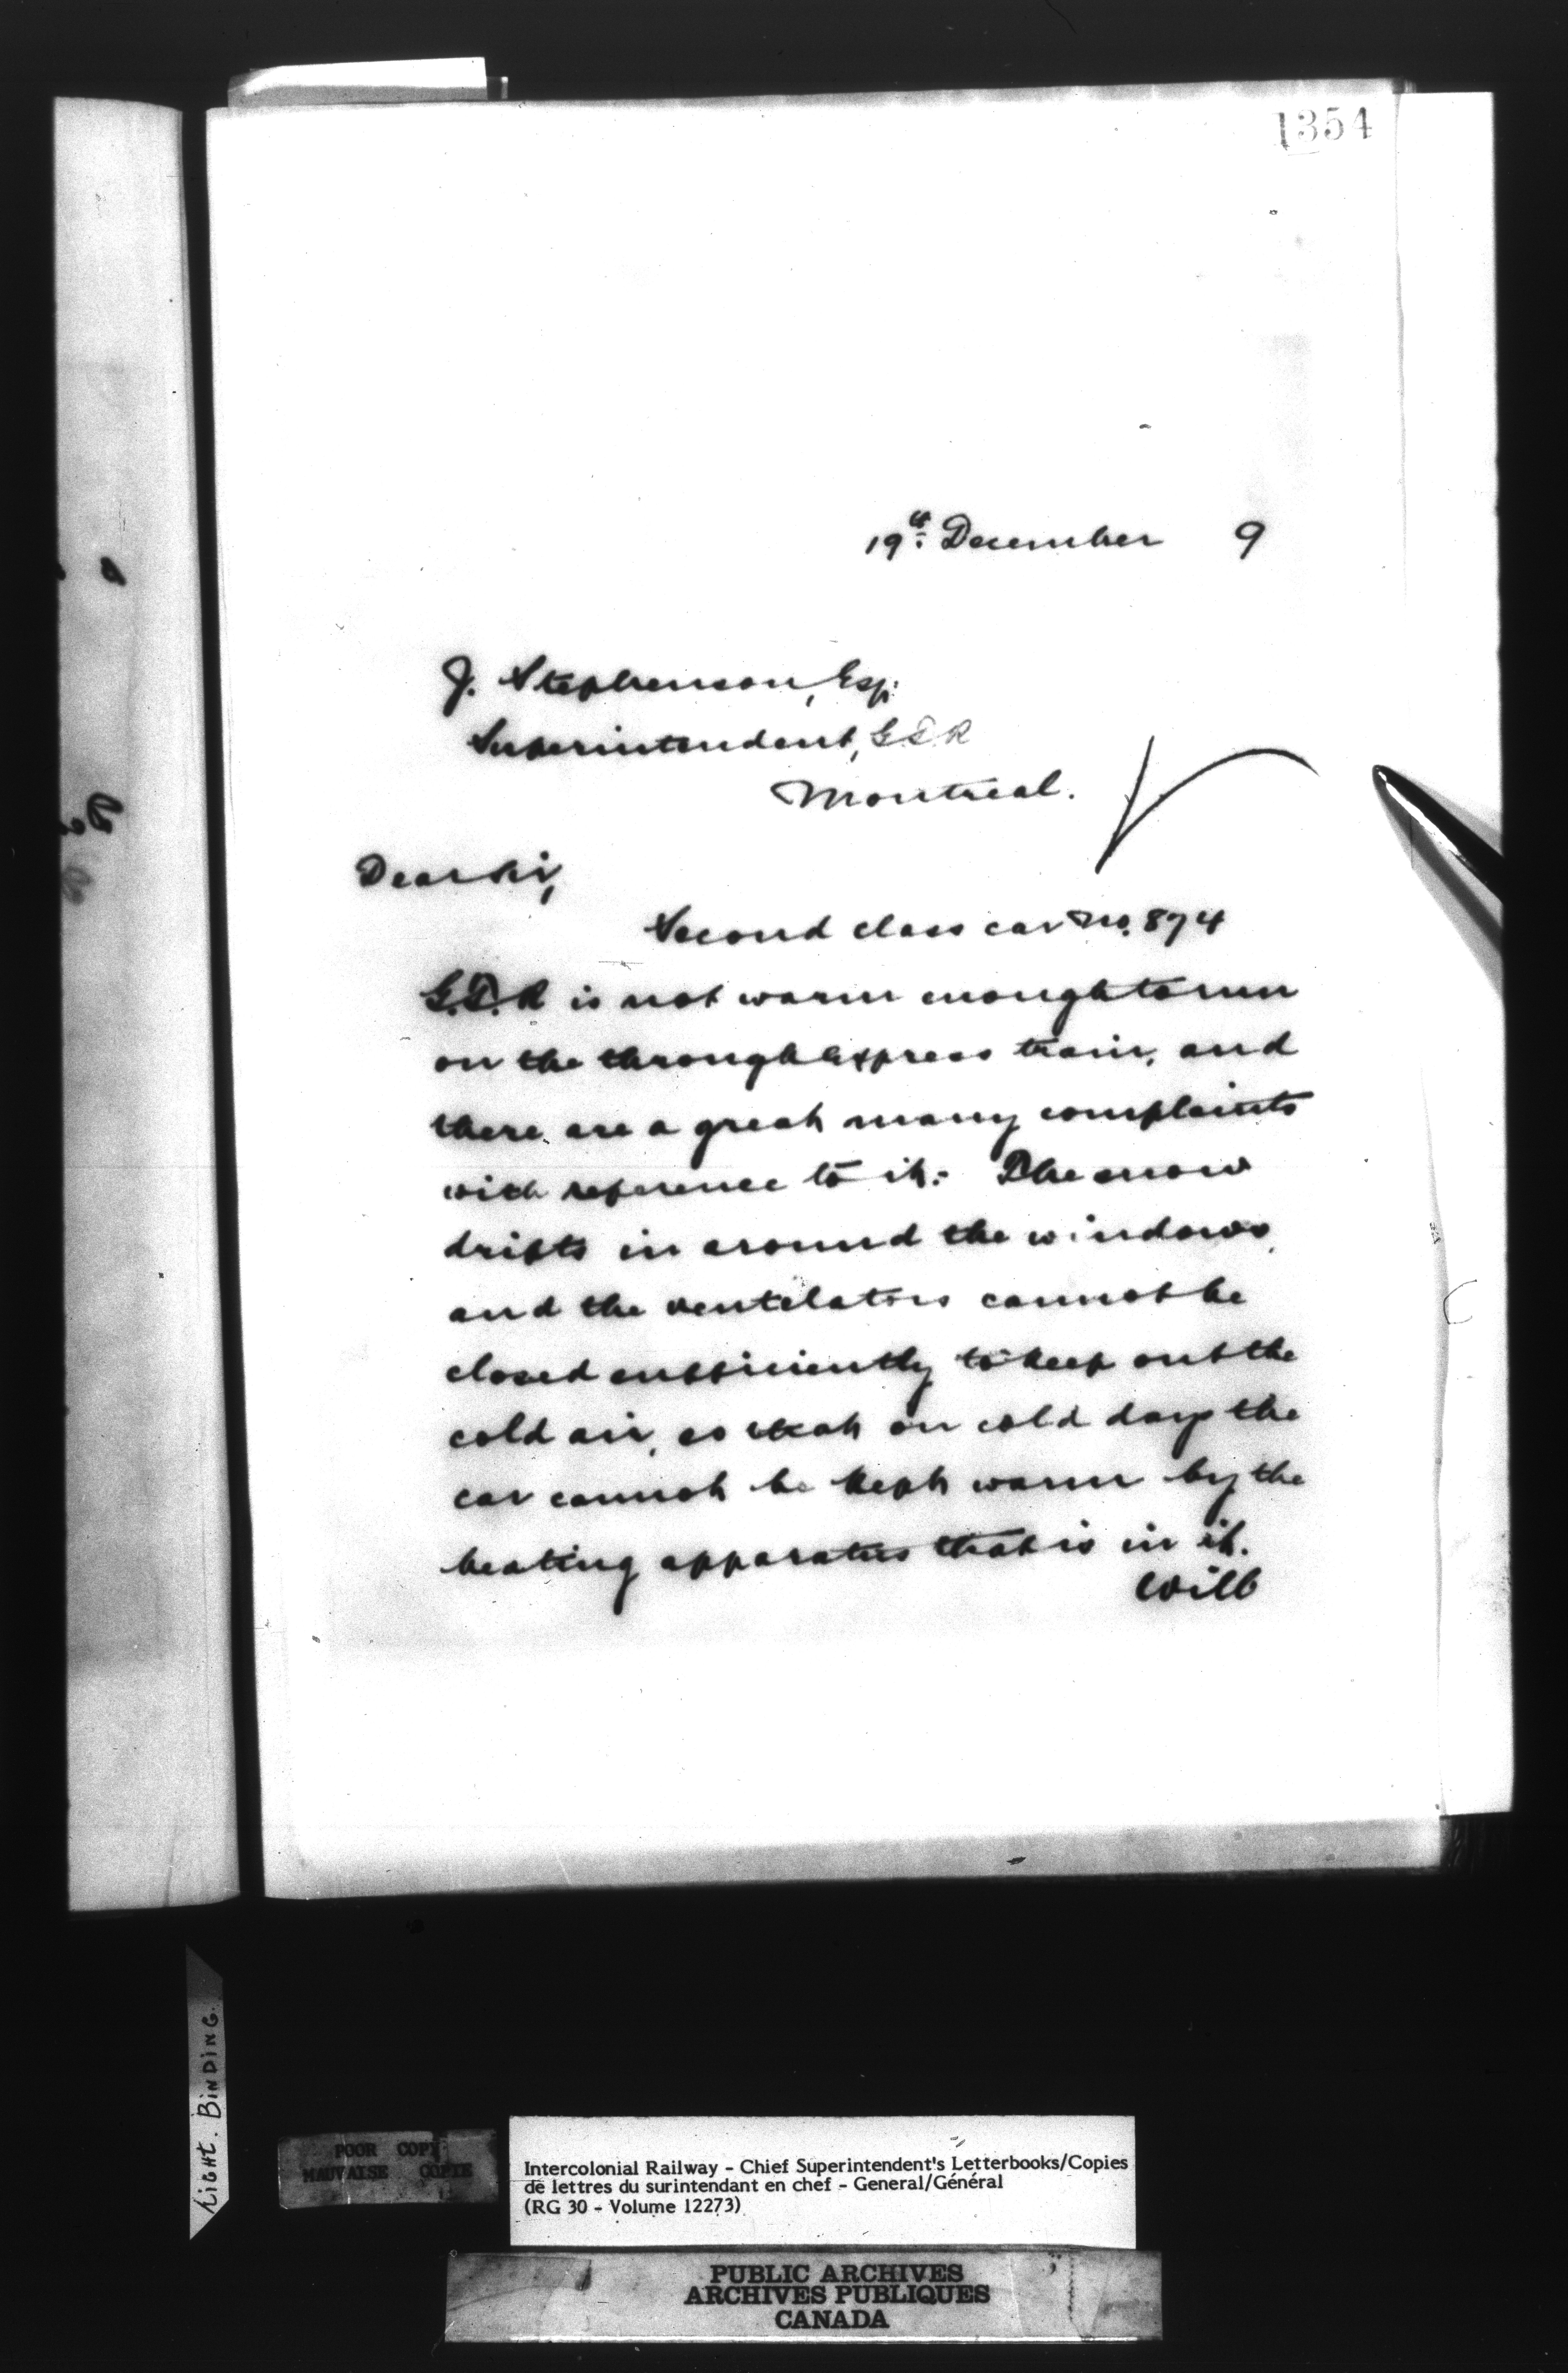 1354
19th December 9
J. Stephenson, Esq:
Superintendent, G.T.R
Montreal.
Dear Sir,
Second class car No. 874
G.T.R is not warm enough to run
on the through Express train, and
there are a great many complaints
with reference to it:- The snow
drifts in around the windows,
and the ventilators cannot be
closed sufficiently to keep out the
cold air, so that on cold days the
car cannot be kept warm by the
heating apparatus that is in it.
Will
TIGHT. BINDING.
POOR COPY
MAUVAISE COPIE
Intercolonial Railway - Chief Superintendent's Letterbooks/Copies
de lettres du surintendant en chef - General/Général
(RG 30 - Volume 12273)
PUBLIC ARCHIVES
ARCHIVES PUBLIQUES
CANADA